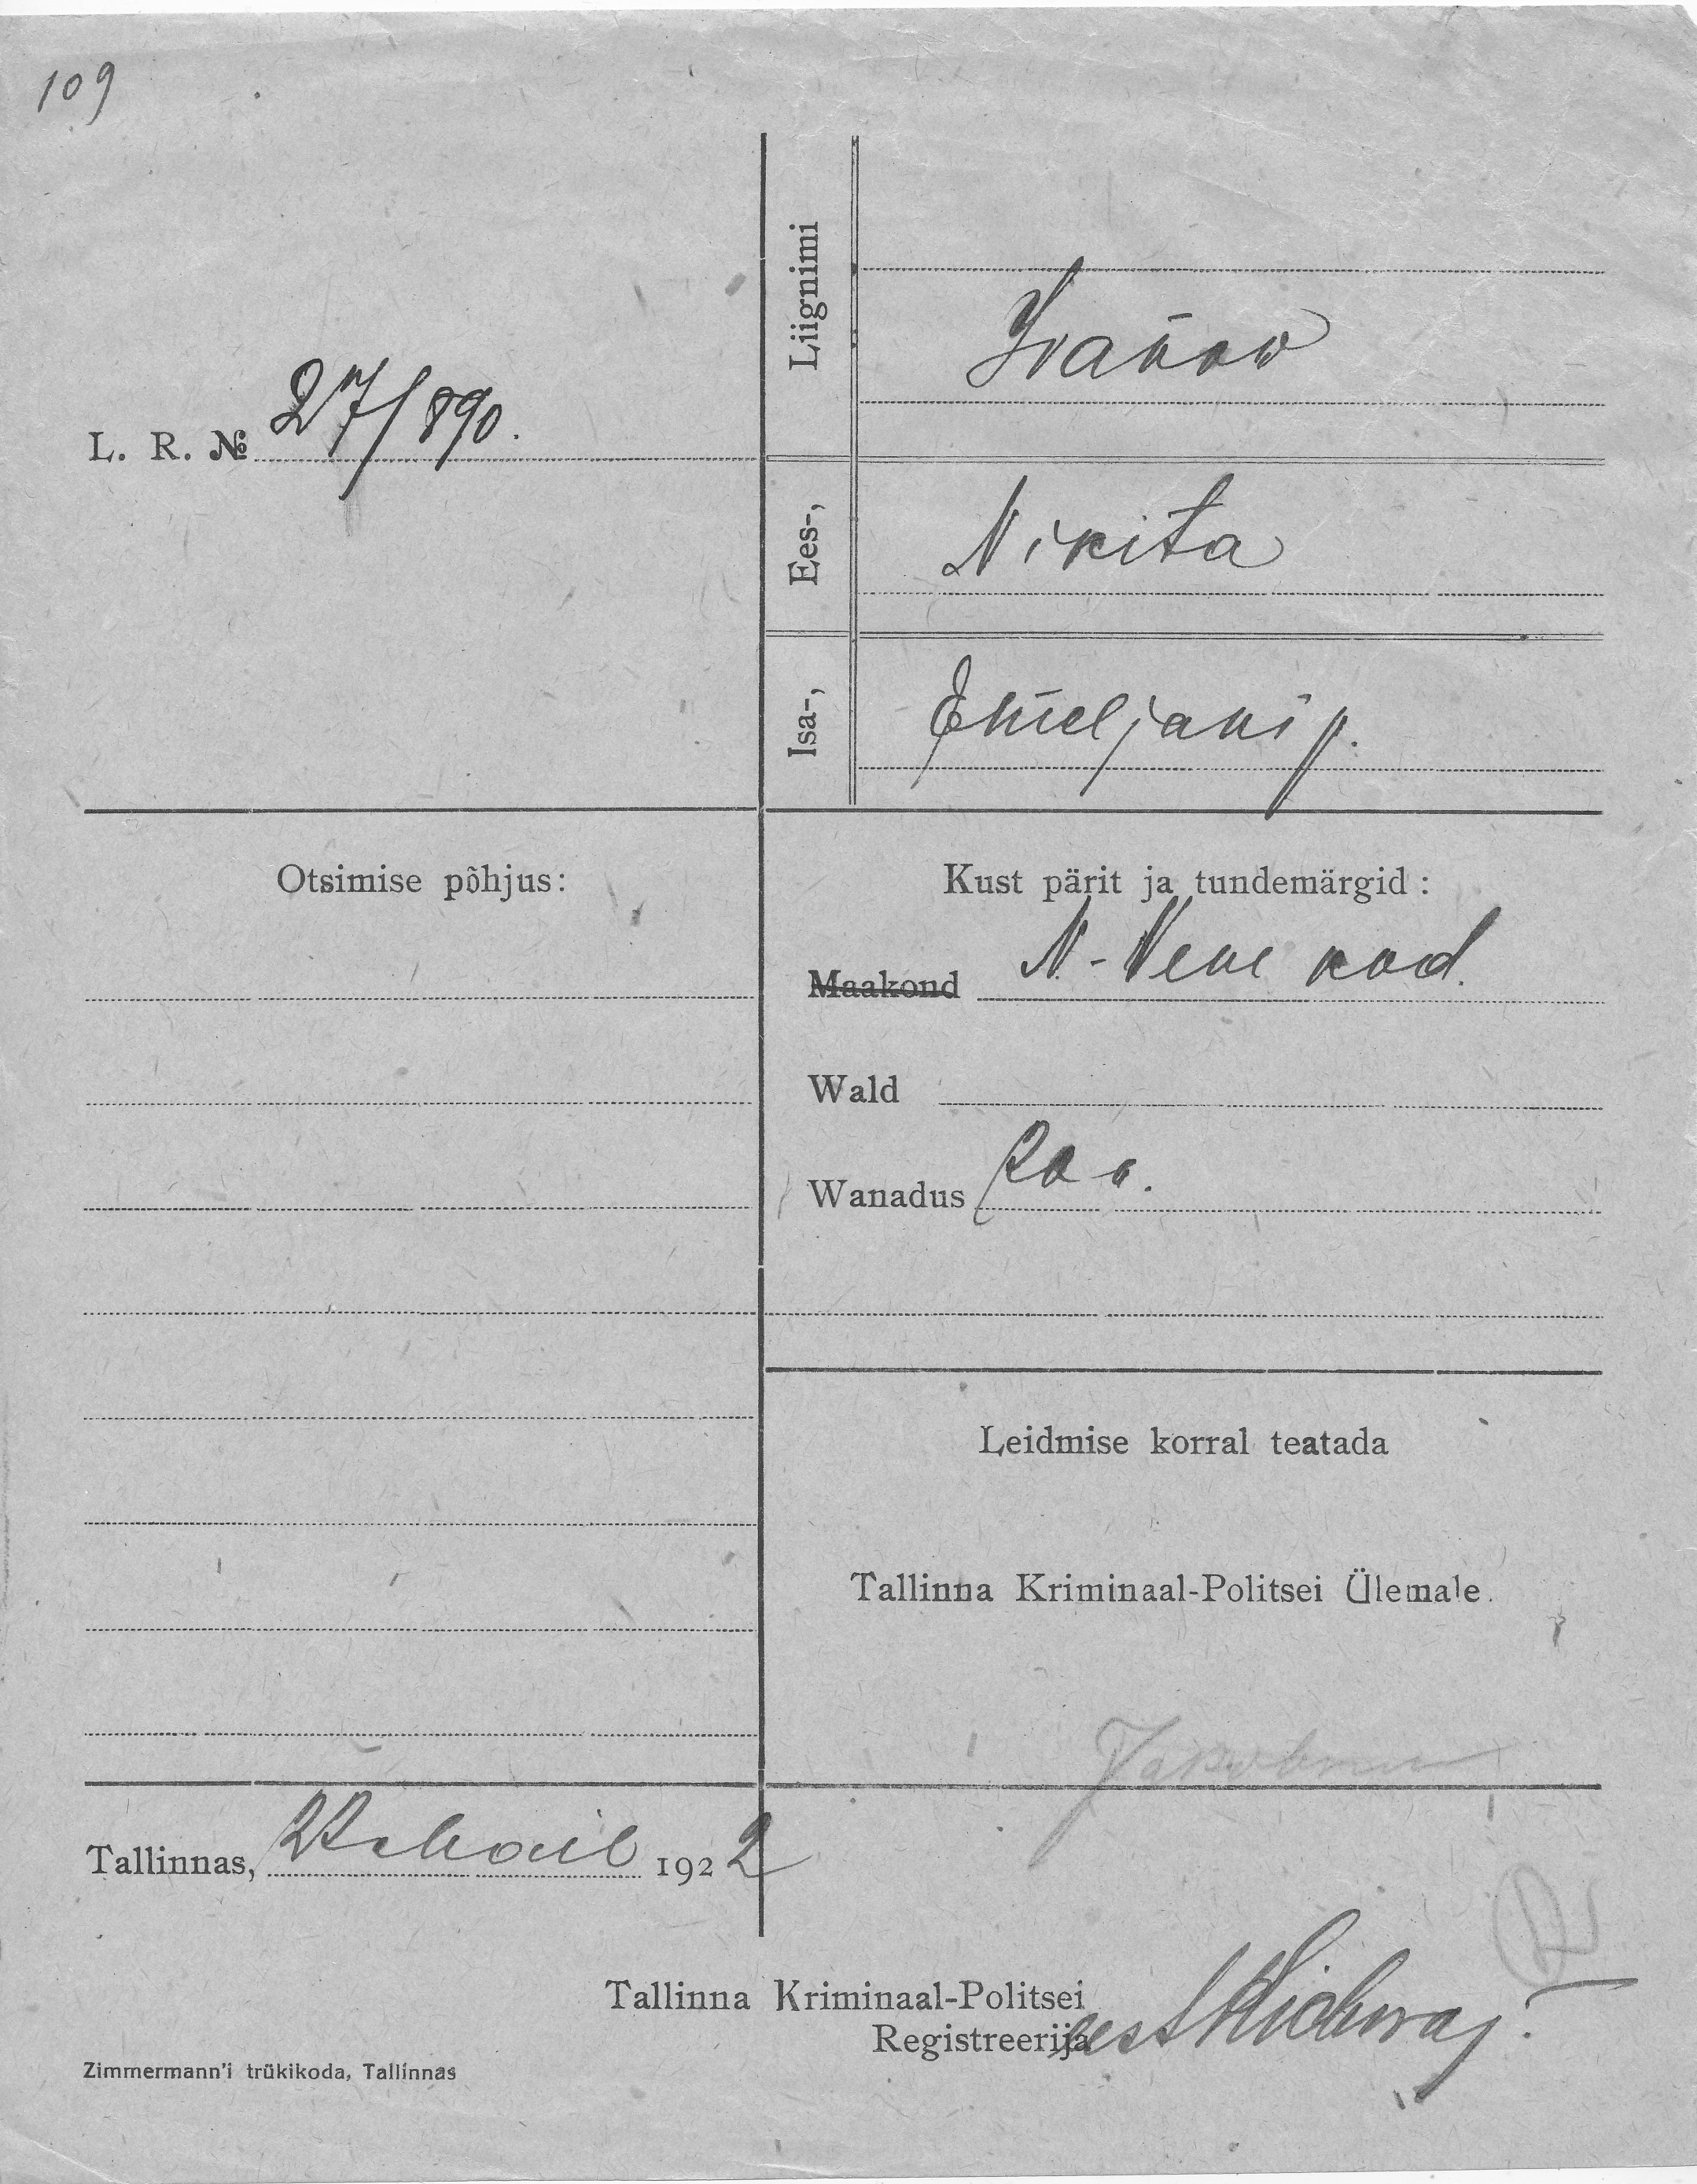 109
Liignimi
Ivanow
L. R. № 27/890.
Ees-,
Nikita
Isa-,
Emeljani p.
Otsimise põhjus:
Kust pärit ja tundemärgid:
Maakond N-Vene kod.
Wald
Wanadus 20 a.
Leidmise korral teatada
Tallinna Kriminaal-Politsei Ülemale.
Tallinnas, 1922
Tallinna Kriminaal-Politsei
Registreerija eest
Zimmermann'i trükikoda, Tallinnas